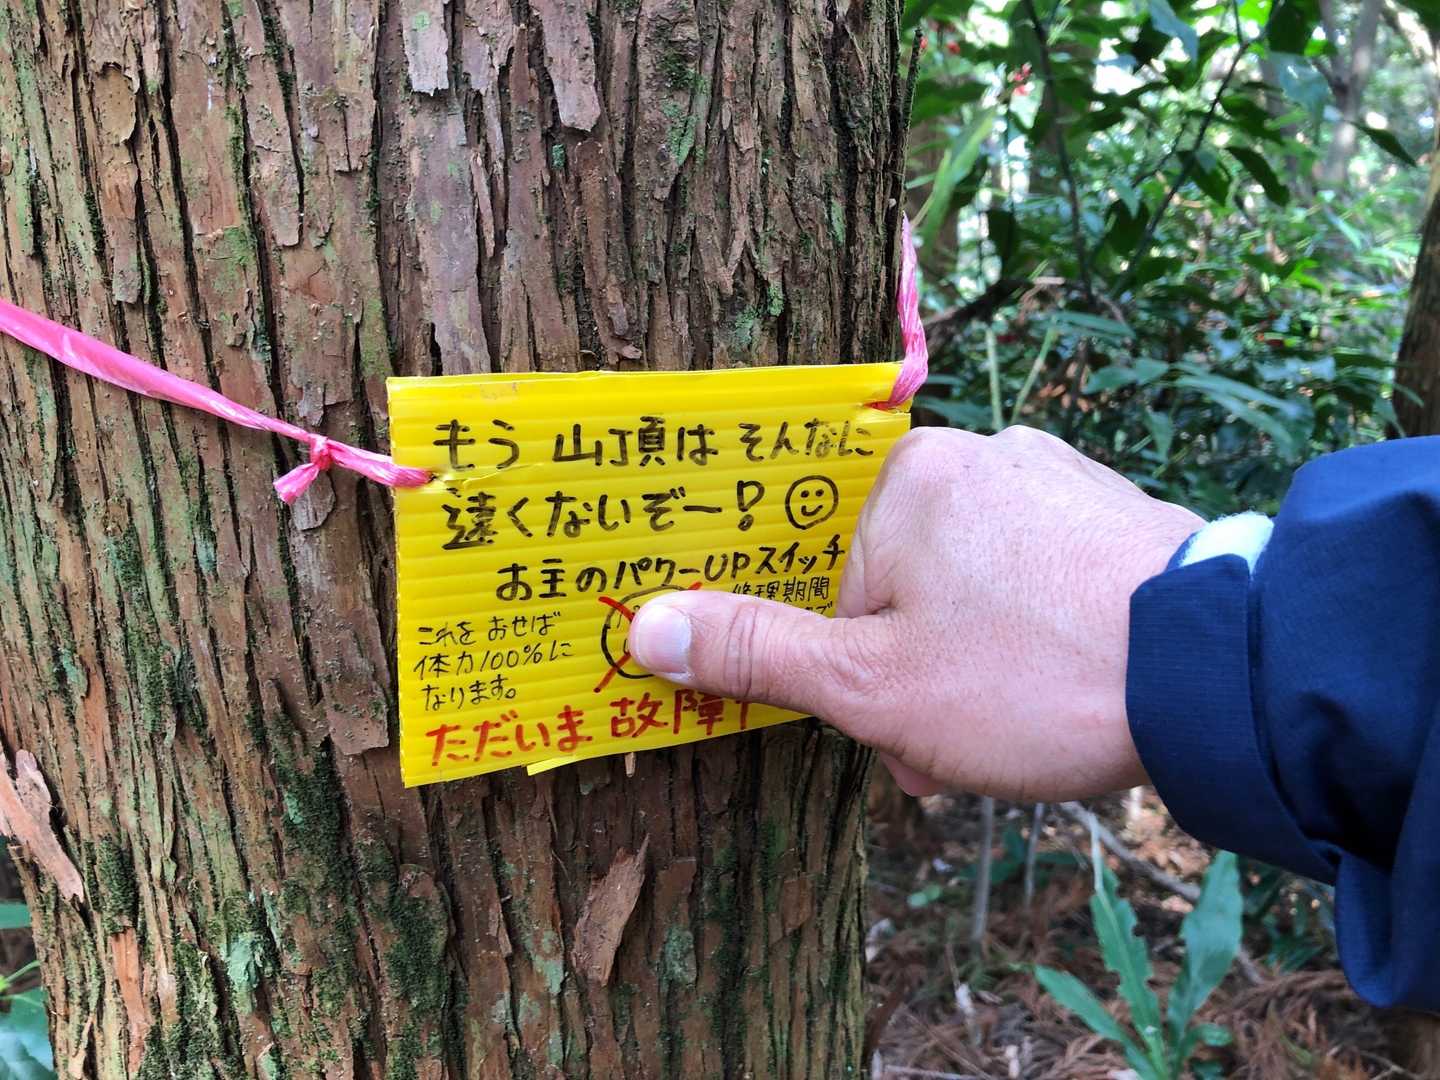 もう 山頂は そんなに
遠くないぞー! 
お主のパワーUPスイッチ
修理期間
これを おせば
体力100%に
なります。
ただいま 故障